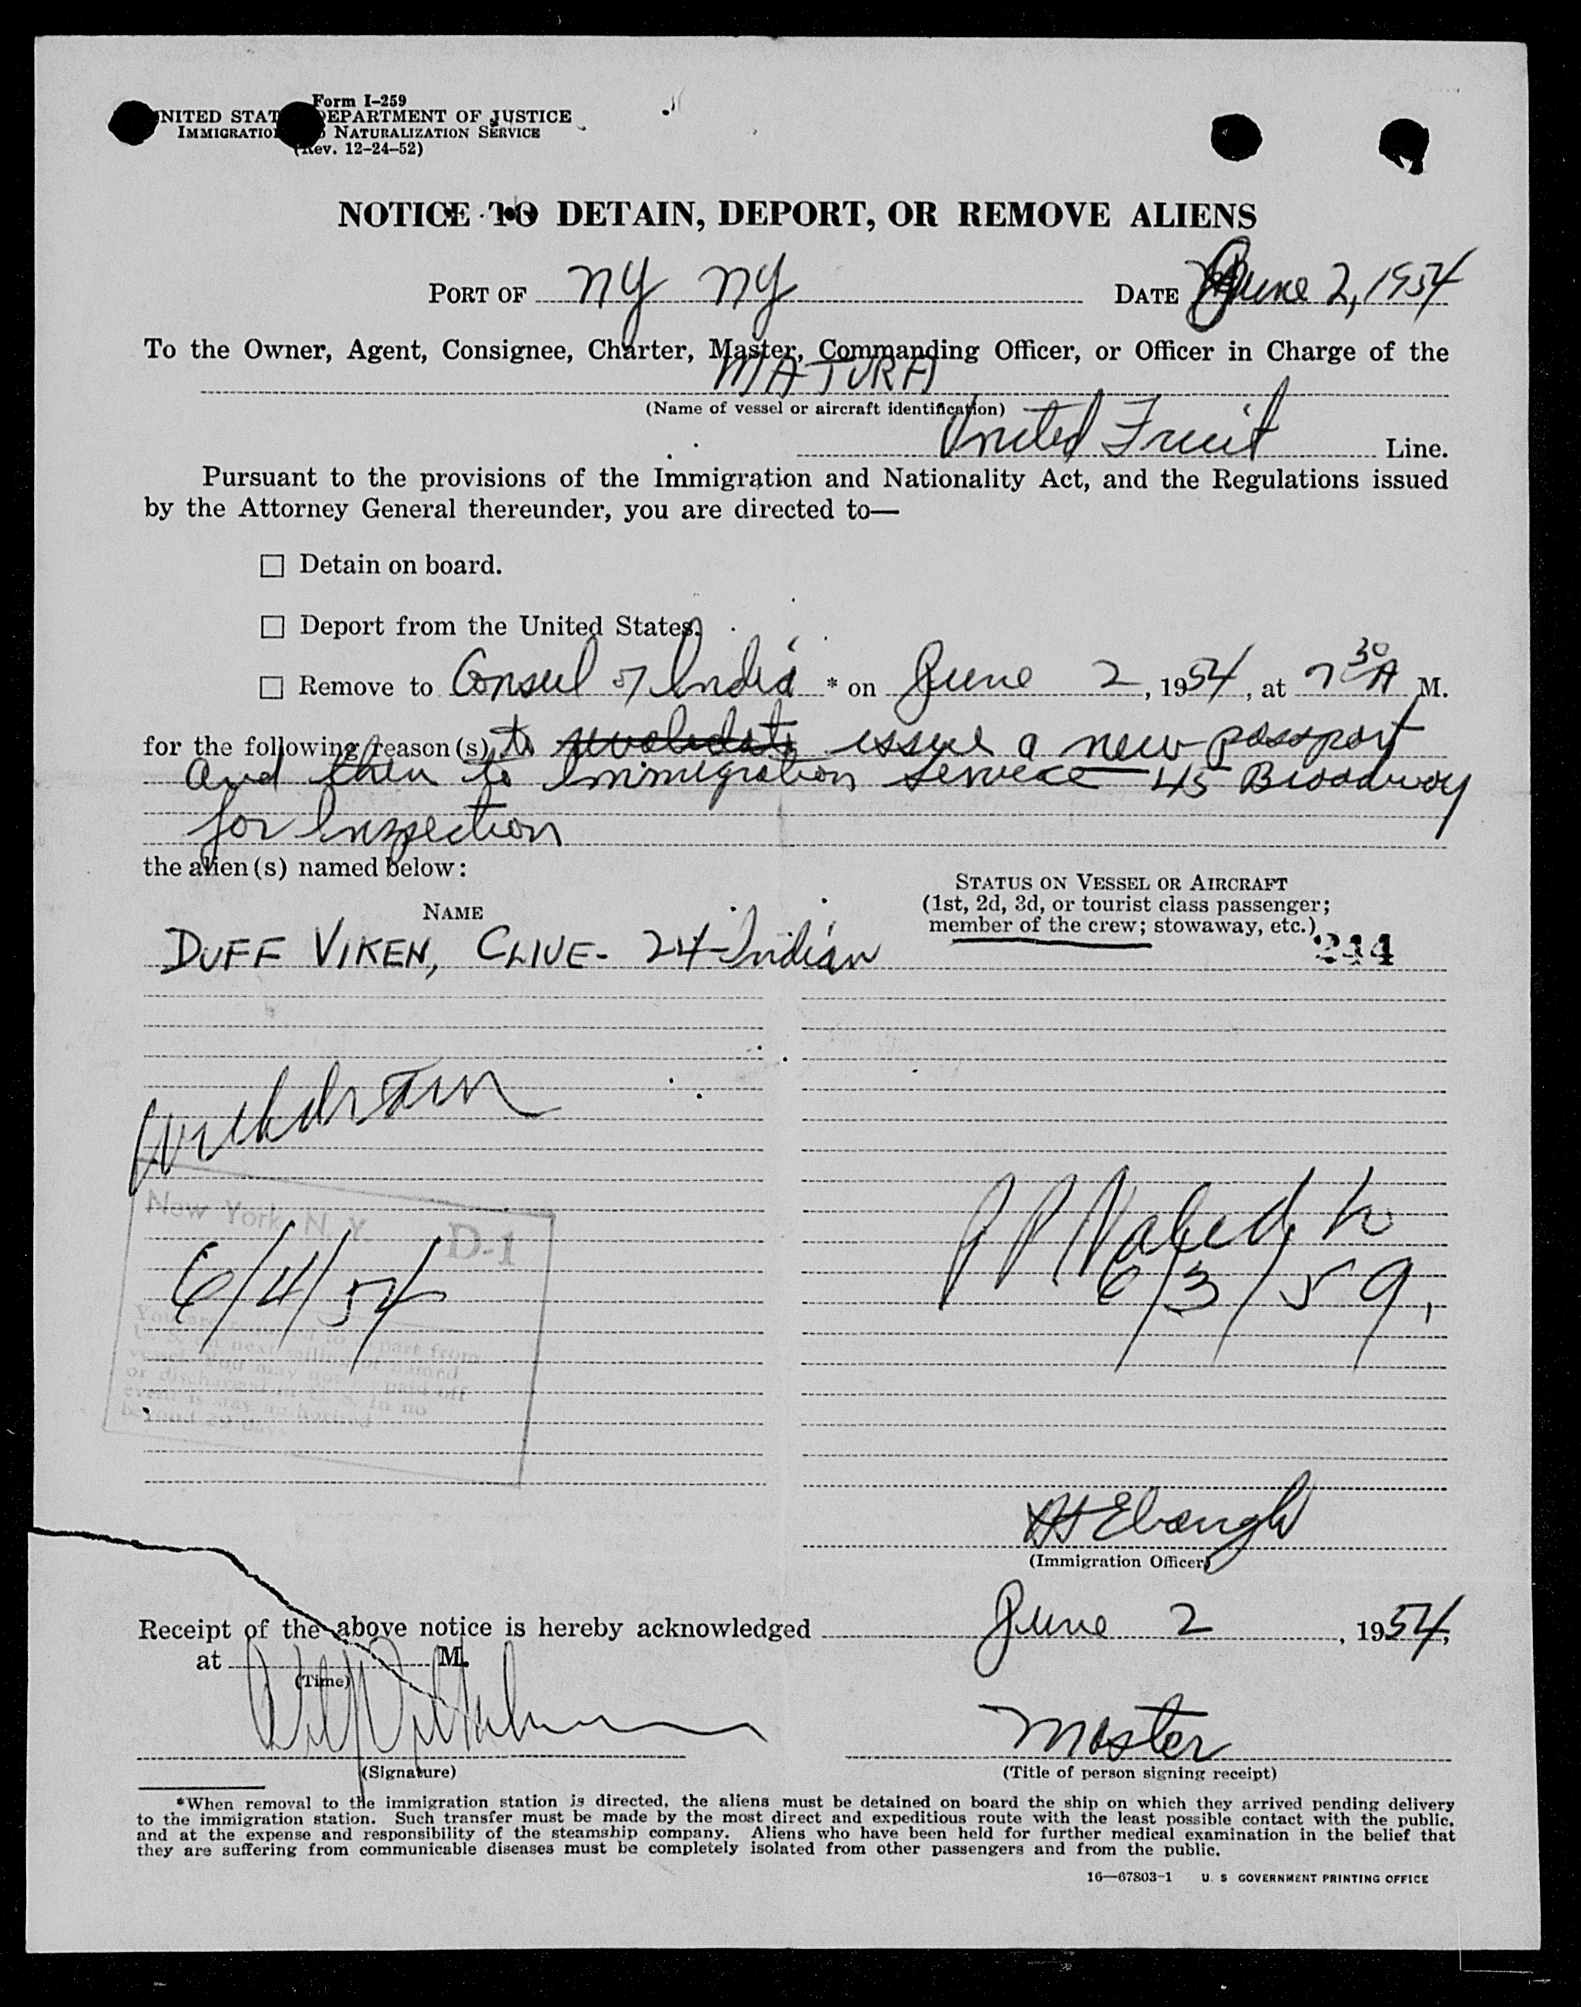 Form I-259
UNITED STATES DEPARTMENT OF JUSTICE
IMMIGRATION AND NATURALIZATION SERVICE
(Rev. 12-24-52)
NOTICE TO DETAIN, DEPORT, OR REMOVE ALIENS
PORT OF NY NY DATE June 2, 1954
To the Owner, Agent, Consignee, Charter, Master, Commanding Officer, or Officer in Charge of the
MATURA
(Name of vessel or aircraft identification)
United Fruit Line.
Pursuant to the provisions of the Immigration and Nationality Act, and the Regulations issued
by the Attorney General thereunder, you are directed to—
☐ Detain on board.
☐ Deport from the United States.
☐ Remove to Consul of India * on June 2, 1954, at 7 30 A M.
for the following reason(s), to revalidate issue a new passport
and then to Immigration Service - 45 Broadway
for Inspection
the alien(s) named below:
NAME
STATUS ON VESSEL OR AIRCRAFT
(1st, 2d, 3d, or tourist class passenger;
member of the crew; stowaway, etc.)
DUFF VIKEN, CLIVE - 24 - Indian
244
Withdrawn
New York, N. Y. D-1
6/4/54
PP Valid to
6/3/59.
part from
next sailing of named
vessel. You may not paid off
or discharged in U. S. In no
beyond 29 days
Ebaugh
(Immigration Officer)
Receipt of the above notice is hereby acknowledged June 2, 1954,
at M.
(Time)
Master
(Signature) (Title of person signing receipt)
*When removal to the immigration station is directed, the aliens must be detained on board the ship on which they arrived pending delivery
to the immigration station. Such transfer must be made by the most direct and expeditious route with the least possible contact with the public,
and at the expense and responsibility of the steamship company. Aliens who have been held for further medical examination in the belief that
they are suffering from communicable diseases must be completely isolated from other passengers and from the public.
16—67803-1 U. S. GOVERNMENT PRINTING OFFICE